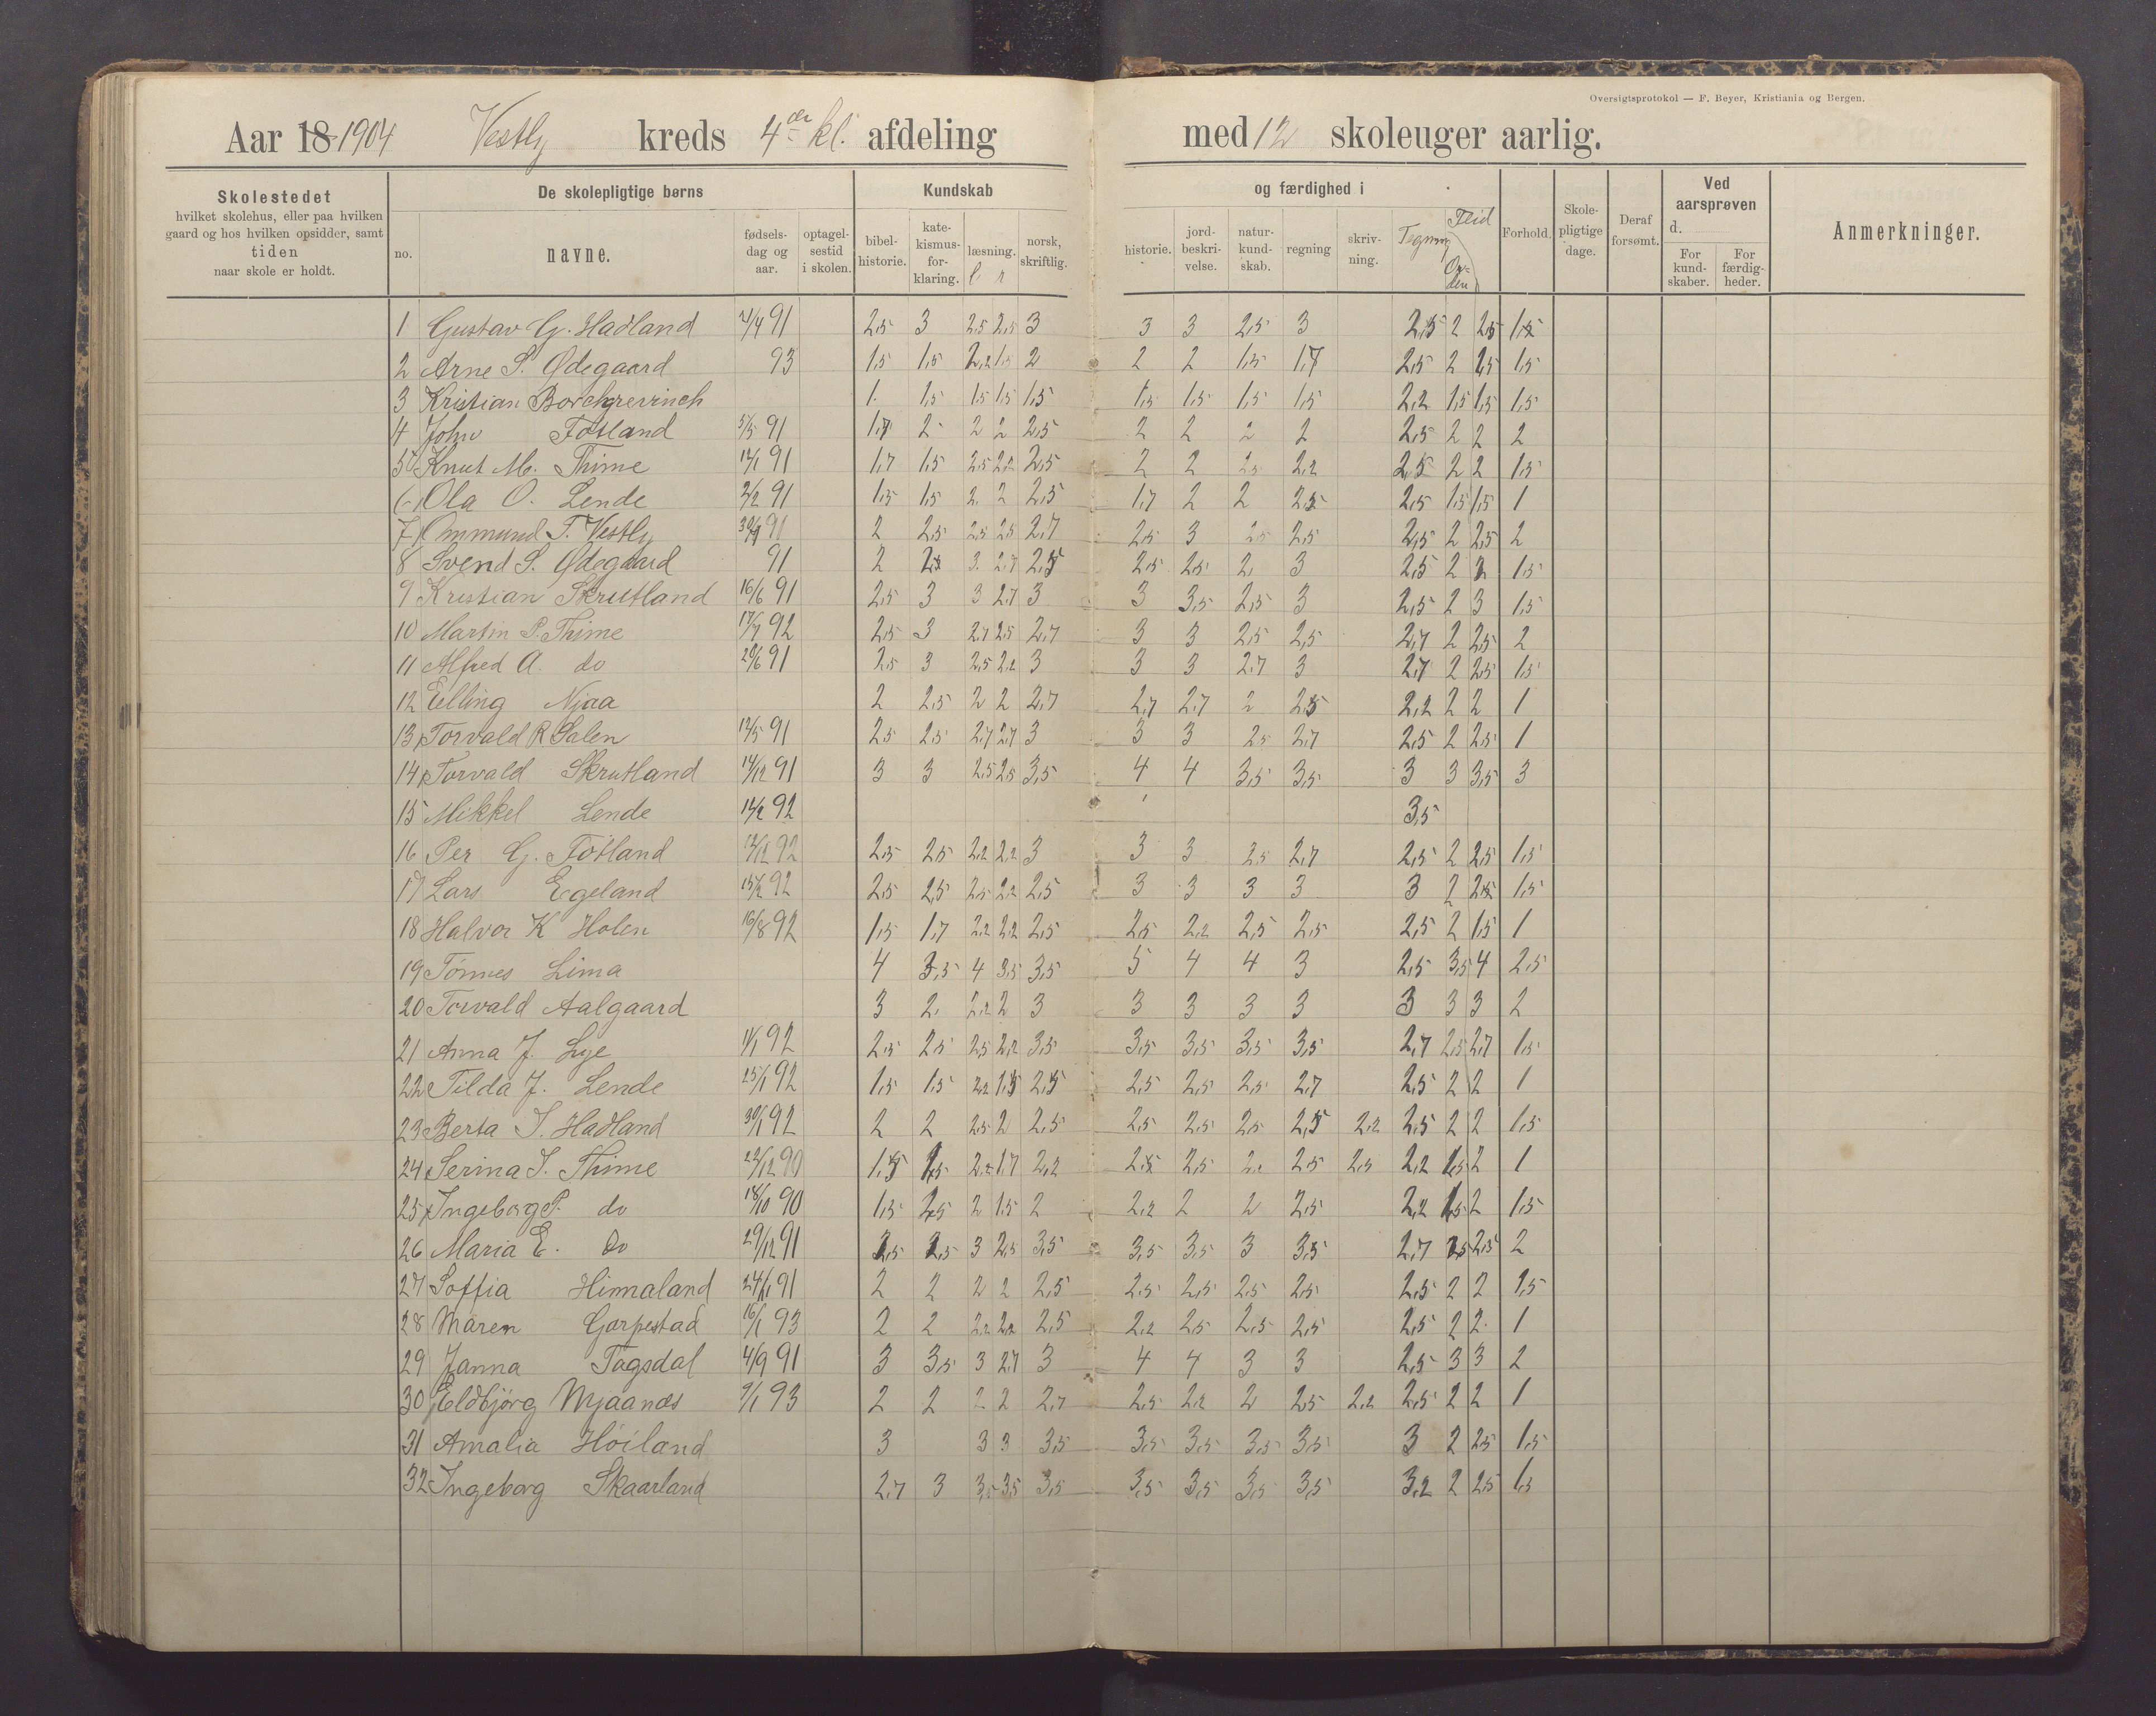 Oversigtsprotokol — F. Beyer, Kristiania og Bergen.
Aar 18 1904 Vestly kreds 4de kl. afdeling med 12 skoleuger aarlig.
Skolestedet hvilket skolehus, eller paa hvilken gaard og hos hvilken opsidder, samt tiden naar skole er holdt.
De skolepligtige børns
no. navne. fødselsdag og aar. optagelsestid i skolen.
Kundskab og færdighed i
bibelhistorie. katekismusforklaring. læsning. l r norsk, skriftlig. historie. jordbeskrivelse. naturkundskab. regning skrivning. Tegning Flid Orden
Forhold. Skolepligtige dage. Deraf forsømt. Ved aarsprøven d. For kundskaber. For færdigheder. Anmerkninger.
1 Gustav G. Hadland 91 2,5 3 2,5 2,5 3 3 3 2,5 3 2,5 2 2,5 1,5
2 Arne S. Ødegaard 93 1,5 1,5 2,2 1,5 2 2 2 1,5 1,7 2,5 2 1,5
3 Kristian Borchgrevinch 1. 1,5 1,5 1,5 1,5 1,5 1,5 1,5 1,5 2,2 1,5 1,5 1,5
4 John Fosland 5/5 91 1,7 2 2 2 2,5 2 2 2 2 2,5 2 2 2
5 Knut M. Thime 12/1 91 1,7 1,5 2,5 2,2 2,5 2 2 2,5 2,2 2,5 2 2 1,5
6 Ola O. Lende 2/2 91 1,5 1,5 2 2 2,5 1,7 2 2 2,5 2,5 1,5 1,5 1
7 Ommund T. Vestly 91 2 2,5 2,5 2,5 2,7 2,5 3 2,5 2,5 2,5 2 2,5 2
8 Svend S. Ødegaard 91 2 2,5 3 2,7 2,5 2,5 2,5 2 3 2,5 2 2 1,5
9 Kristian Skrutland 16/6 91 2,5 3 3 2,7 3 3 3,5 2,5 3 2,5 2 3 1,5
10 Martin P. Thime 17/7 92 2,5 3 2,7 2,5 2,7 3 3 2,5 2,5 2,7 2 2,5 2
11 Alfred A. do 20/6 91 2,5 3 2,5 2,2 3 3 3 2,7 3 2,7 2 2,5 1,5
12 Elling Njaa 2 2,5 2 2 2,7 2,7 2,7 2 2,5 2,2 2 2 1
13 Torvald R Salen 12/5 91 2,5 2,5 2,7 2,7 3 3 3 2,5 2,7 2,5 2 2,5 1
14 Torvald Skrutland 14/12 91 3 3 2,5 2,5 3,5 4 4 3,5 3,5 3 3 3,5 3
15 Mikkel Lende 14/2 92 3,5
16 Per G. Fosland 92 2,5 2,5 2,2 2,2 3 3 3 2,5 2,7 2,5 2 2,5 1,5
17 Lars Egeland 15/2 92 2,5 2,5 2,5 2,2 2,5 3 3 3 3 3 2 2,5 1,5
18 Halvor K Holen 16/8 92 1,5 1,7 2,2 2,2 2,5 2,5 2,2 2,5 2,5 2,5 2 1,5 1
19 Tönnes Lima 4 3,5 4 3,5 3,5 5 4 4 3 2,5 3,5 4 2,5
20 Torvald Aalgaard 3 2 2,2 2 3 3 3 3 3 3 3 3 2
21 Anna J. Lye 1/1 92 2,5 2,5 2,5 2,2 3,5 3,5 3,5 3,5 3,5 2,7 2,5 2,7 1,5
22 Tilda J. Lende 25/1 92 1,5 1,5 2,2 1,5 2,5 2,5 2,5 2,5 2,7 2,5 2 2 1
23 Berta I. Hadland 30/1 92 2 2 2,5 2 2,5 2,5 2,5 2,5 2,5 2,2 2,5 2 2 1,5
24 Serina I. Thime 22/12 90 1,5 1,5 2,2 1,7 2,2 2,5 2,5 2,5 2,5 2,2 1,5 2 1
25 Ingeborg P. do 18/10 90 1,5 1,5 2 1,5 2 2,2 2 2 2,5 2,2 1,5 2 1,5
26 Maria E. do 29/12 91 2,5 3 2,5 3,5 3,5 3,5 3 3,5 2,7 2,5 2
27 Soffia Himaland 91 2 2 2 2 2,5 2,5 2,5 2,5 2,5 2,5 2 2 1,5
28 Maren Garpestad 16/1 93 2 2 2,2 2,2 2,5 2,2 2,5 2,5 2,5 2,5 2 2 1
29 Janna Tagsdal 4/9 91 3 3,5 3 2,7 3 4 4 3 3 2,5 3 3 2
30 Eldbjörg Njaanæs 9/1 93 2 2 2 2 2,7 2,5 2,2 2 2,5 2,2 2,5 2 2 1
31 Amalia Höiland 3 3 3 3,5 3,5 3,5 3,5 3,5 3 2 2,5 1,5
32 Ingeborg Skaarland 2,7 3 3,5 3,5 3,5 3,5 3,5 3,5 3,5 3,2 2 2,5 1,5